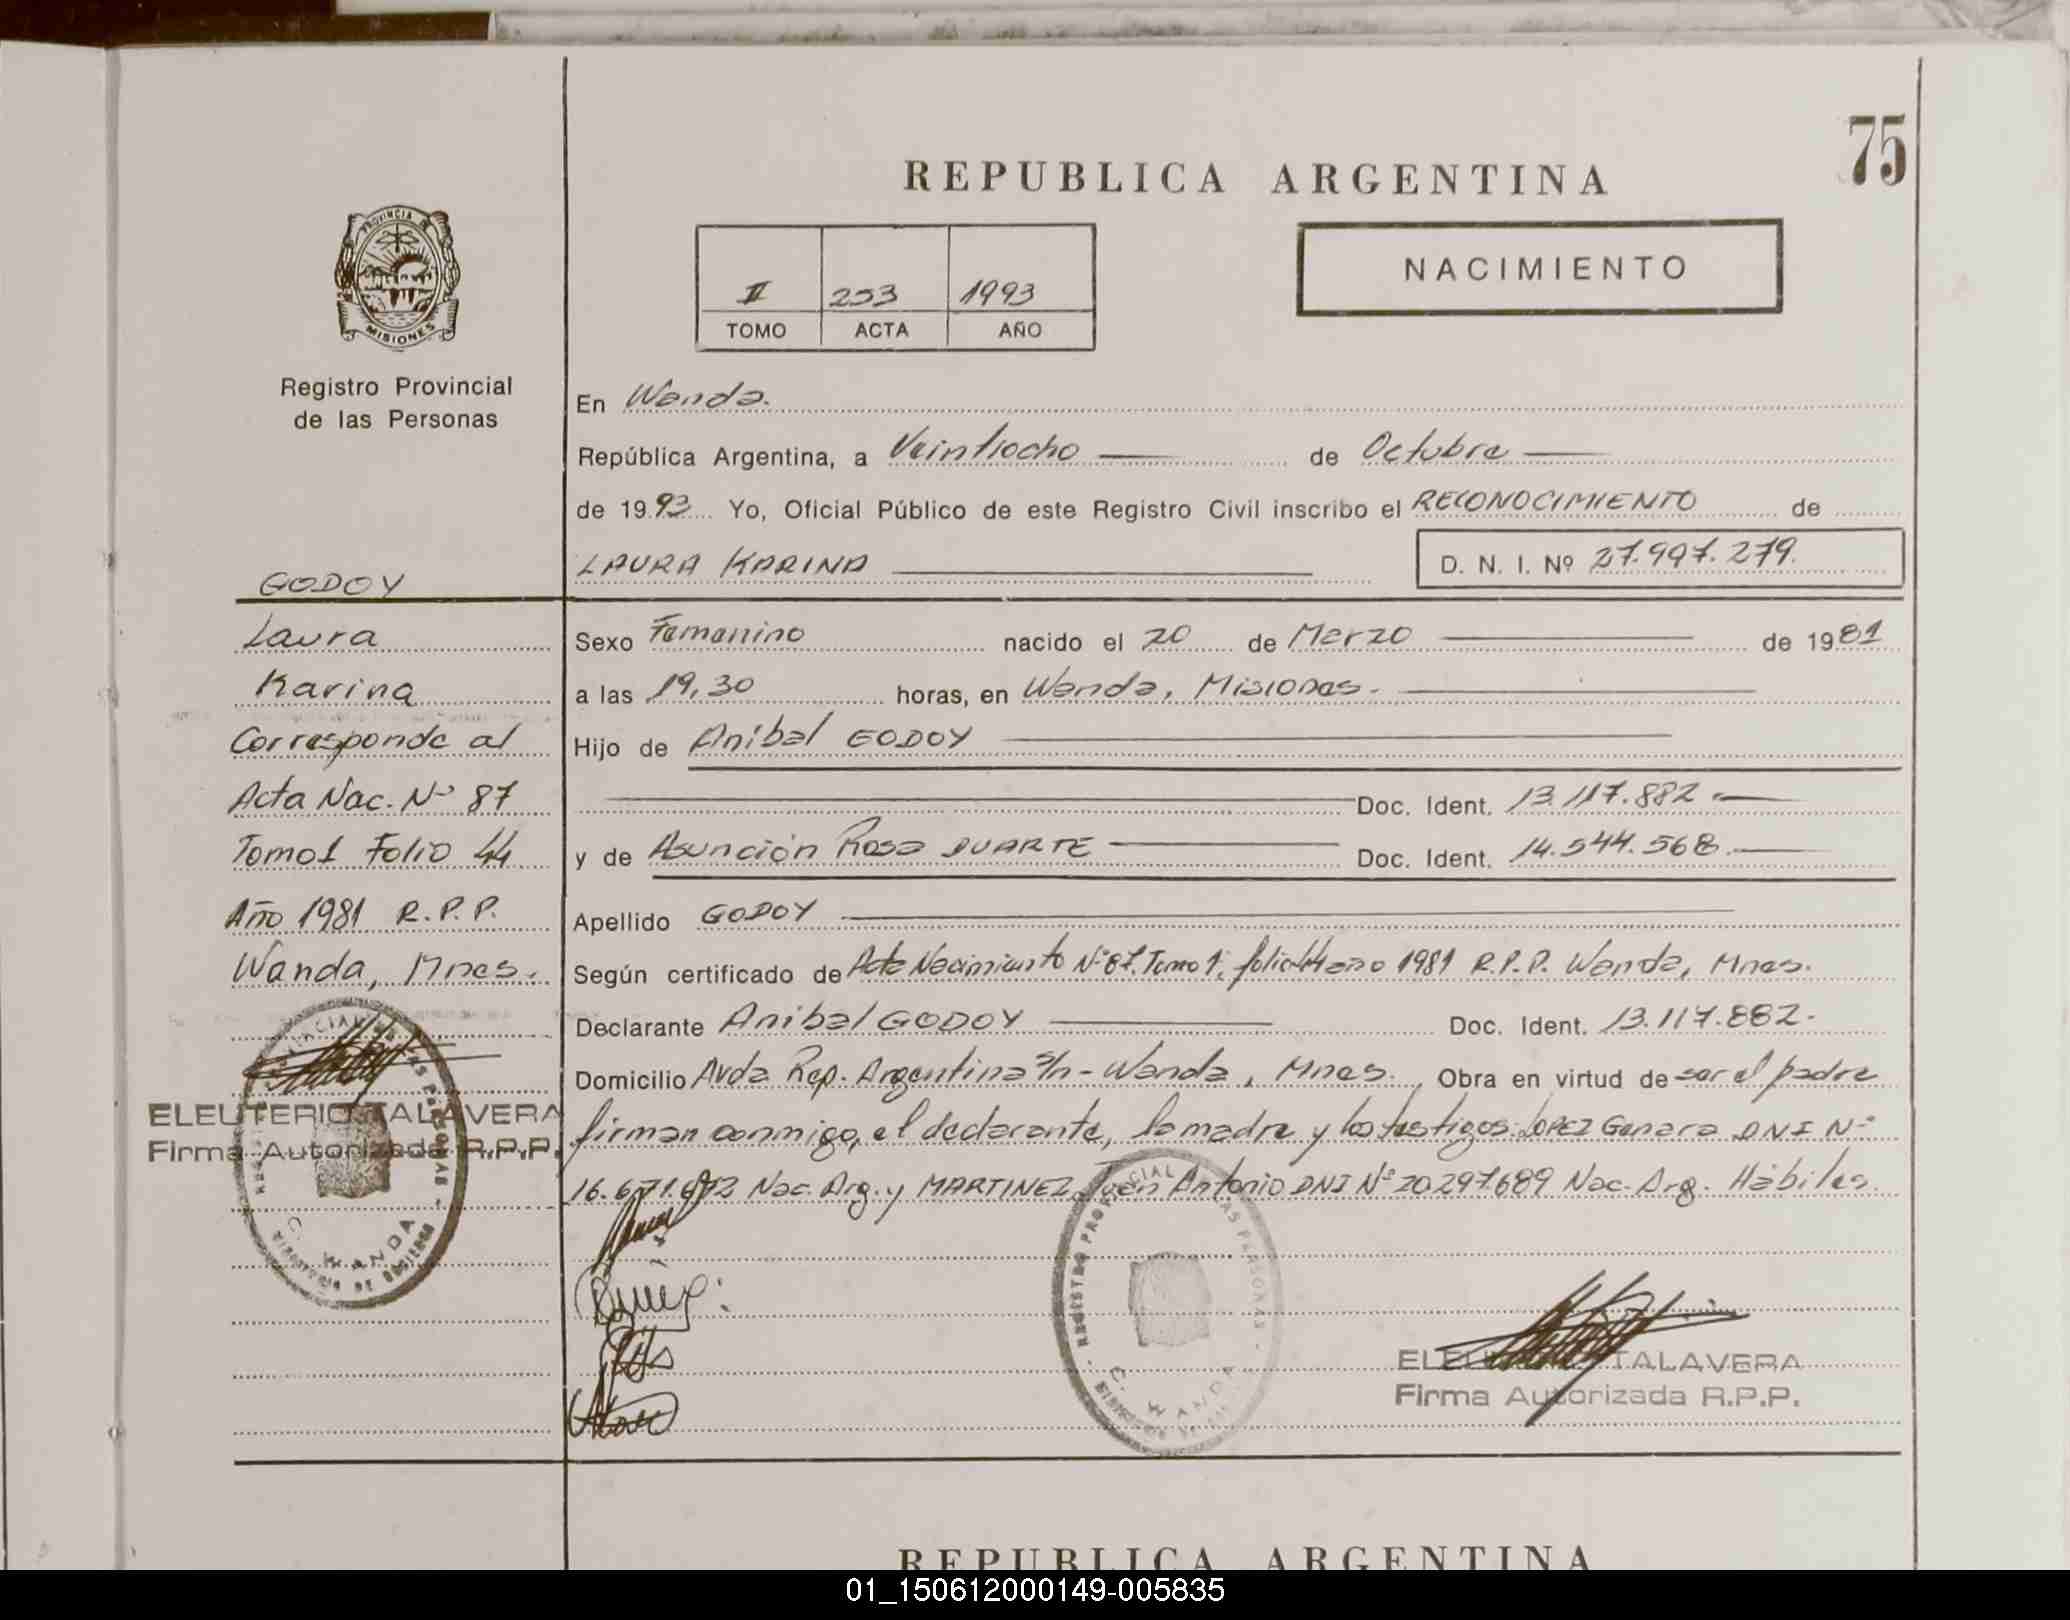 75
REPUBLICA ARGENTINA
PROVINCIA DE
MISIONES
Registro Provincial
de las Personas
II 253 1993
TOMO ACTA AÑO
NACIMIENTO
En Wanda.
República Argentina, a Veintiocho de Octubre
de 1993 Yo, Oficial Público de este Registro Civil inscribo el RECONOCIMIENTO de
LAURA KARINA D. N. I. Nº 27.997.279.
GODOY
Laura
Karina
Corresponde al
Acta Nac. Nº 87
Tomo 1 Folio 44
Año 1981 R.P.P.
Wanda, Mnes.
ELEUTERIO TALAVERA
Firma Autorizada R.P.P.
WANDA
Sexo Femenino nacido el 20 de Marzo de 1981
a las 19,30 horas, en Wanda, Misiones.
Hijo de Anibal GODOY
Doc. Ident. 13.117.882.
y de Asunción Rosa DUARTE Doc. Ident. 14.544.568.
Apellido GODOY
Según certificado de Acta Nacimiento Nº 87. Tomo 1, folio 44 año 1981 R.P.P. Wanda, Mnes.
Declarante Anibal GODOY Doc. Ident. 13.117.882.
Domicilio Avda Rep. Argentina s/n - Wanda, Mnes. Obra en virtud de ser el padre
firman conmigo, el declarante, la madre y los testigos: LOPEZ Genara DNI Nº
Nac. Arg. y MARTINEZ Juan Antonio DNI Nº 20.297.689 Nac. Arg. Hábiles.
REGISTRO PROVINCIAL DE LAS PERSONAS
WANDA
ELEUTERIO TALAVERA
Firma Autorizada R.P.P.
REPUBLICA ARGENTINA
01_150612000149-005835